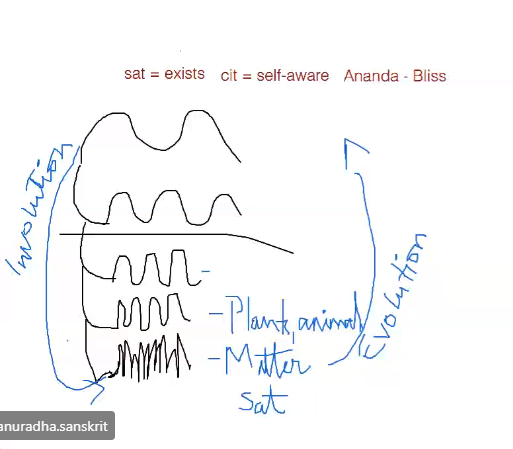 sat = exists cit = self-aware Ananda - Bliss
Involution
Evolution
- Plant, animal
- Matter
Sat
anuradha.sanskrit